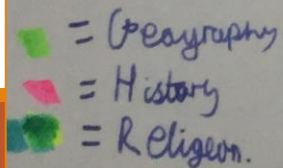 = Geography
= History
= Religeon.